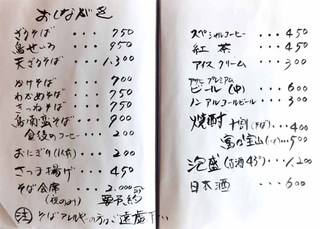 おしながき
ざるそば ・・・ 750
鳥せいろ ・・・ 950
天ざるそば ・・ 1,300
かけそば ・・・ 700
わかめそば ・・ 750
きつねそば ・・ 750
鳥南蛮そば ・・ 900
食後のコーヒー ・・ 200
おにぎり ・・ 200
さつま揚げ ・・ 450
そば会席 ・・ 2,000
(夜のみ) 要予約
注 そばアレルギーの方はご遠慮下さい
スペシャルコーヒー ・・・ 450
紅茶 ・・・ 450
アイスクリーム ・・・ 300
プレミアム
ビール (中) ・・・ 600
ノンアルコールビール ・・ 300
焼酎 十割 (そば) ・・ 400
富乃宝山 (いも) ・・ 500
泡盛 (古酒43°) ・・ 1,200
日本酒 ・・・ 600